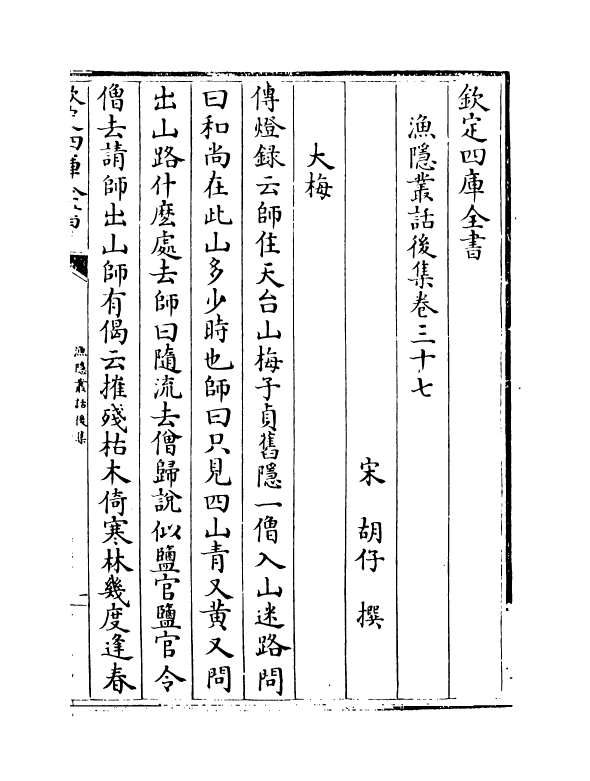 欽定四庫全書
漁隱叢話後集卷三十七
宋　胡仔　撰
大梅
傳燈録云師住天台山梅子貞舊隱一僧入山迷路問
曰和尚在此山多少時也師曰只見四山青又黄又問
出山路什麽處去師曰隨流去僧歸說似鹽官鹽官令
僧去請師出山師有偈云摧殘枯木倚寒林幾度逢春
漁隱叢話後集
一